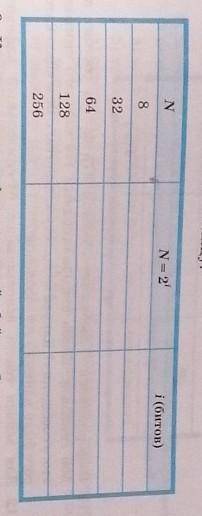 N N = 2^i i (битов)
8
32
64
128
256